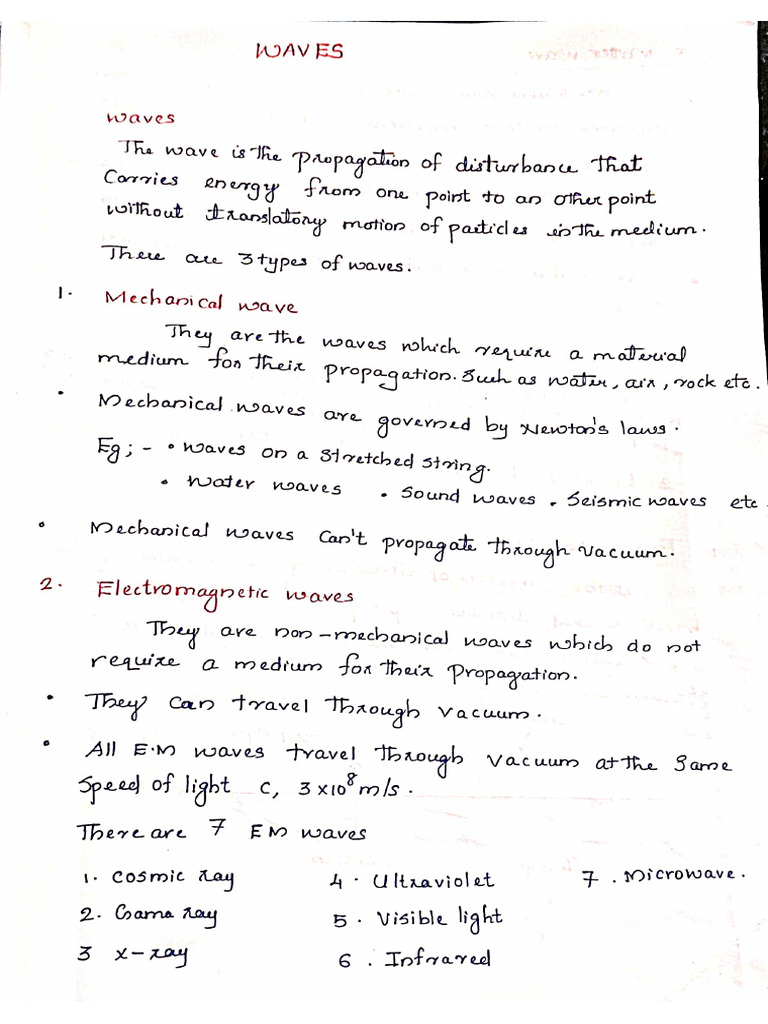 WAVES
Waves
The wave is the propagation of disturbance that
Carries energy from one point to an other point
without translatory motion of particles in the medium.
There are 3 types of waves.
1. Mechanical wave
They are the waves which require a material
medium for their propagation. Such as water, air, rock etc.
• Mechanical waves are governed by Newton's laws.
Eg; - • Waves on a stretched string.
• Water waves • Sound waves • Seismic waves etc
• Mechanical waves Can't propagate through Vacuum.
2. Electromagnetic waves
They are non-mechanical waves which do not
require a medium for their Propagation.
• They can travel through vacuum.
• All E.M waves travel through vacuum at the same
Speed of light C, 3×10⁸ m/s.
There are 7 EM waves
1. Cosmic ray 4. Ultraviolet 7. Microwave.
2. Gama ray 5. Visible light
3 X-ray 6. Infrared